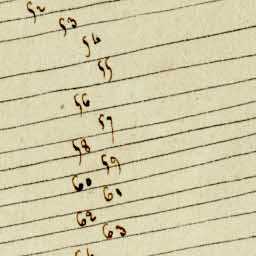 52
53
54
55
56
57
58
59
60
61
62
63